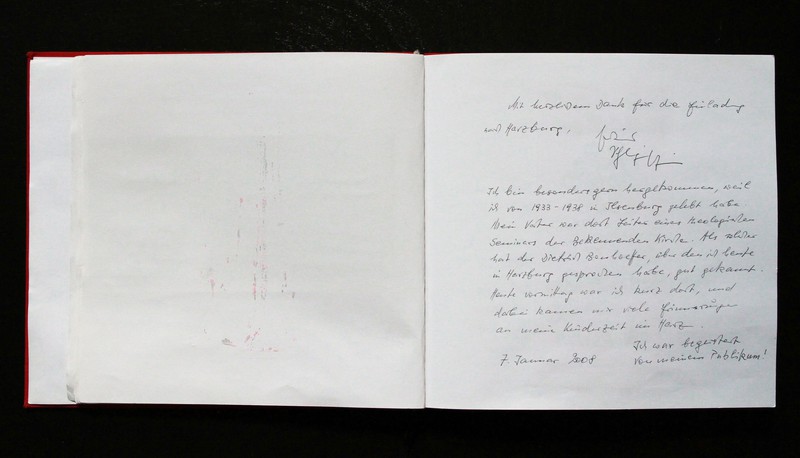 Mit herzlichem Dank für die Einladung
nach Harzburg.
Ich bin besonders gern hergekommen, weil
ich von 1933-1938 in Ilsenburg gelebt habe.
Mein Vater war dort Leiter eines theologischen
Seminars der Bekennenden Kirche. Als
hat der Dietrich Bonhoeffer, über den ich heute
in Harzburg gesprochen habe, gut gekannt.
Heute vormittag war ich kurz dort, und
dabei kamen mir viele Erinnerungen
an meine Kinderzeit im Harz.
Ich war begeistert
7. Januar 2008 von meinem Publikum!